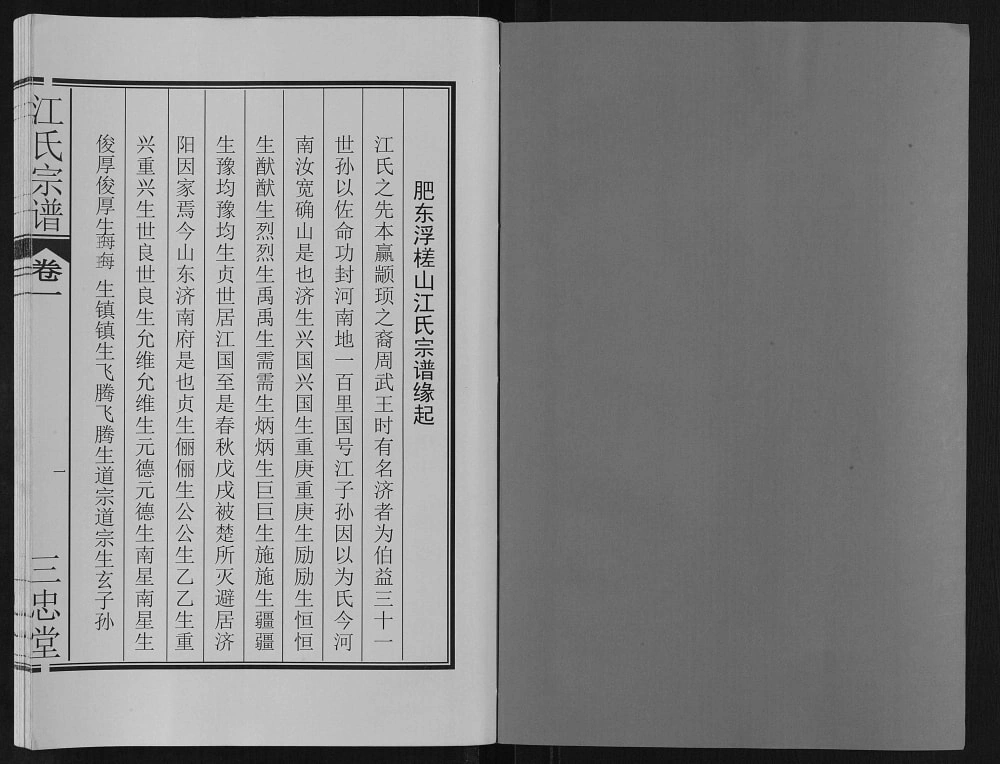 肥东浮槎山江氏宗谱缘起
江氏之先本嬴颛顼之裔周武王时有名济者为伯益三十一
世孙以佐命功封河南地一百里国号江子孙因以为氏今河
南汝宽确山是也济生兴国兴国生重庚重庚生励励生恒恒
生猷猷生烈烈生禹禹生需需生炳炳生巨巨生施施生疆疆
生豫均豫均生贞世居江国至是春秋戊戌被楚所灭避居济
阳因家焉今山东济南府是也贞生俪俪生公公生乙乙生重
兴重兴生世良世良生允维允维生元德元德生南星南星生
俊厚俊厚生 生镇镇生飞腾飞腾生道宗道宗生玄子孙
江氏宗谱
卷一
一
三忠堂